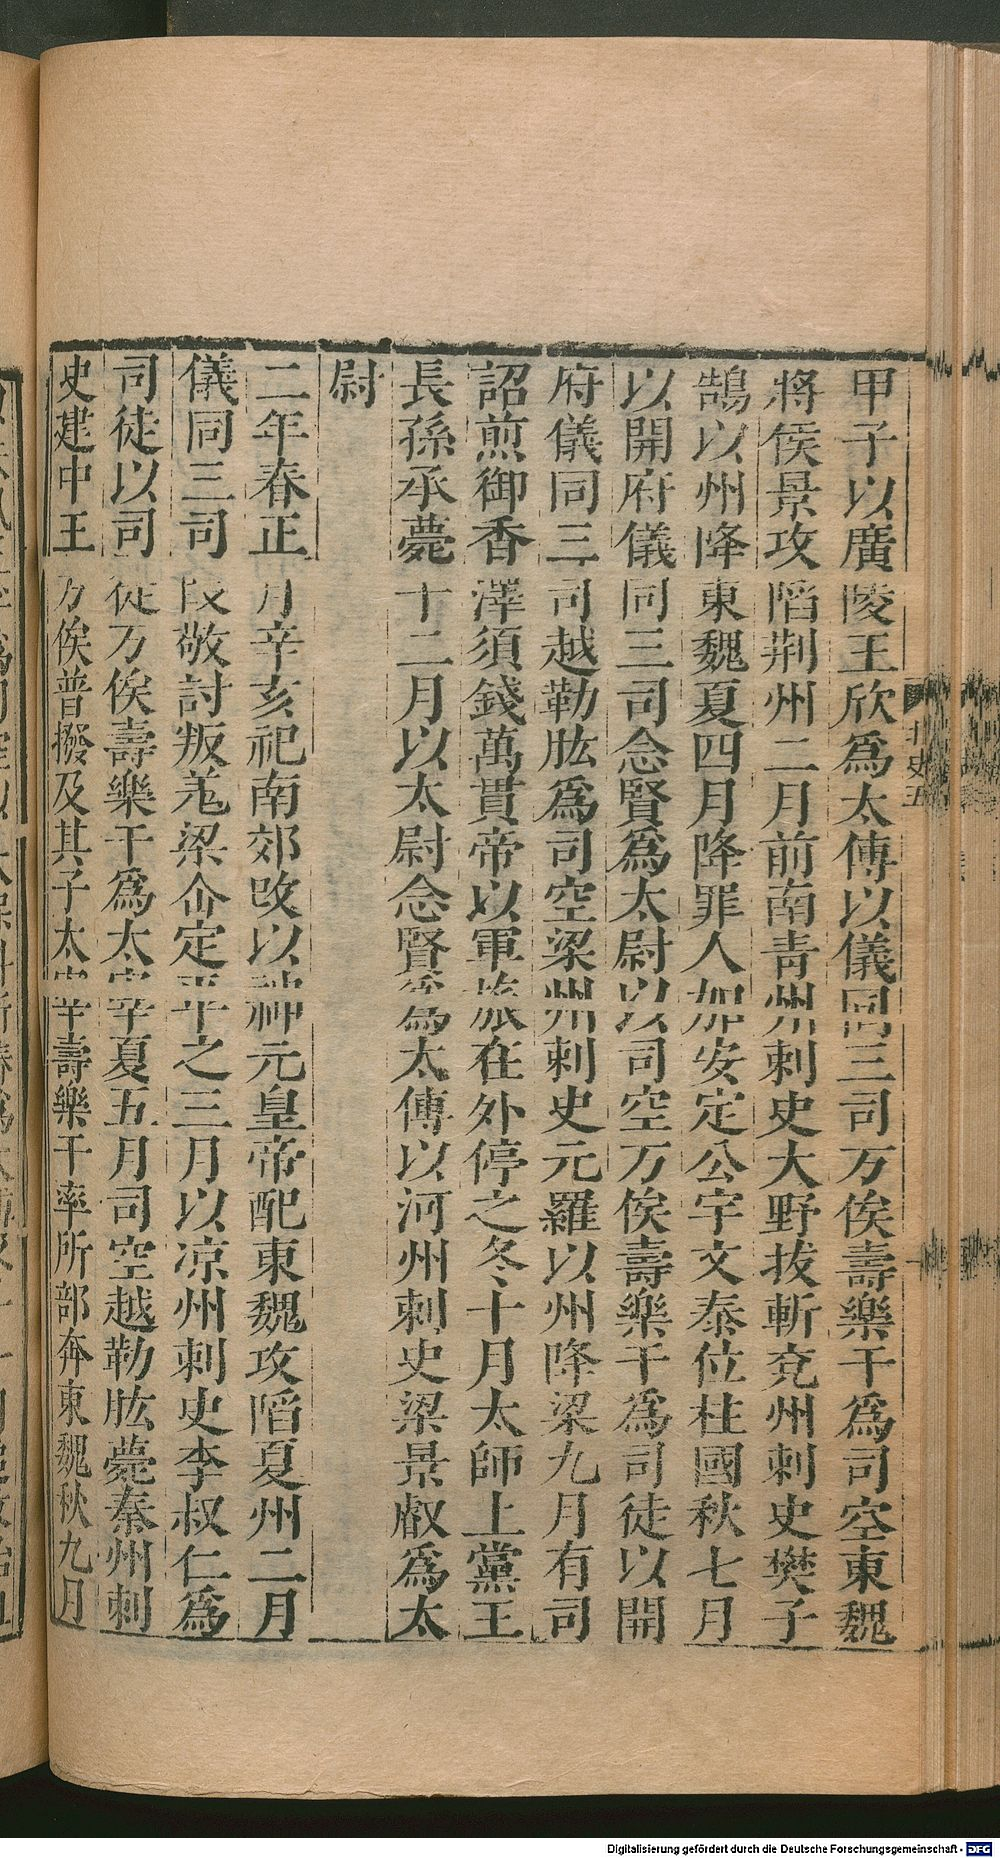 甲子以廣陵王欣爲太傅以儀同三司万俟壽樂干爲司空東魏
將侯景攻陷荆州二月前南青州刺史大野拔斬兖州刺史樊子
鵠以州降東魏夏四月降罪人加安定公宇文泰位柱國秋七月
以開府儀同三司念賢爲太尉以司空万俟壽樂干爲司徒以開
府儀同三司越勒肱爲司空梁州刺史元羅以州降梁九月有司
詔煎御香澤須錢萬貫帝以軍旅在外停之冬十月太師上黨王
長孫承薨十二月以太尉念賢爲太傅以河州刺史梁景叡爲太
尉
二年春正月辛亥祀南郊改以神元皇帝配東魏攻陷夏州二月
儀同三司段敬討叛羌梁企定平之三月以凉州刺史李叔仁爲
司徒以司徒万俟壽樂干爲太宰夏五月司空越勒肱薨秦州刺
史建中王万俟普撥及其子太宰壽樂干率所部奔東魏秋九月
北史五
Digitalisierung gefördert durch die Deutsche Forschungsgemeinschaft - DFG